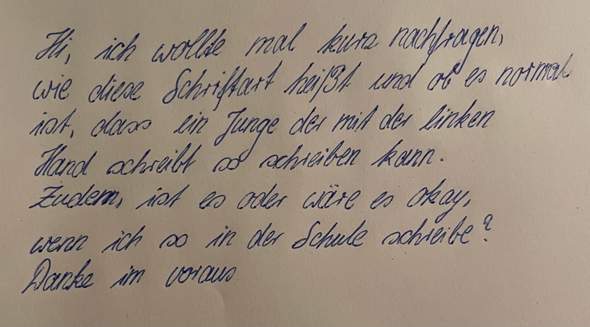 Hi, ich wollte mal kurz nachfragen,
wie diese Schriftart heißt und ob es normal
ist, dass ein Junge der mit der linken
Hand schreibt so schreiben kann.
Zudem, ist es oder wäre es okay,
wenn ich so in der Schule schreibe?
Danke im voraus